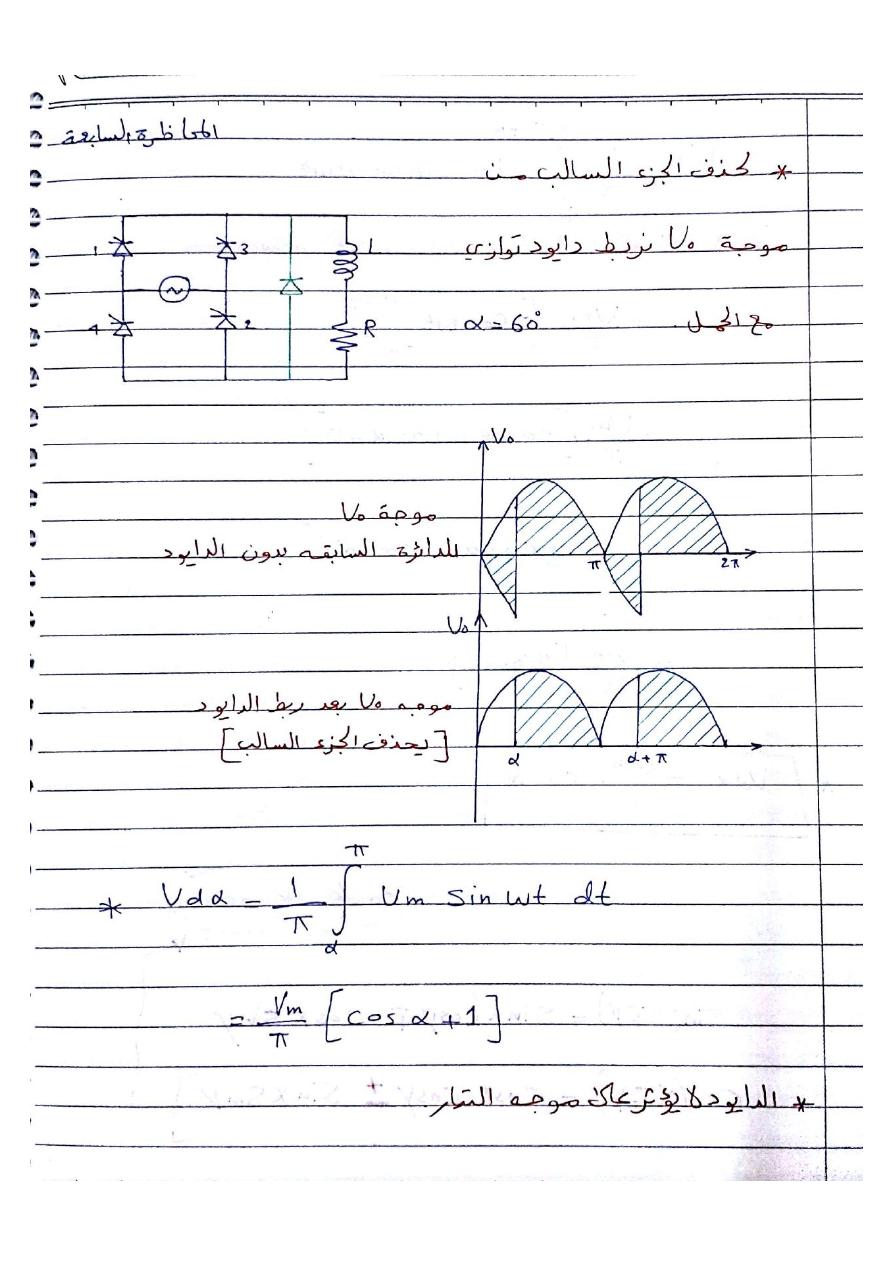 المحاظرة السابعة
* لحذف الجزء السالب من
موجة Vo نربط دايود توازي
مع الحمل. α = 60°
1 3 L
4 2 R
Vo
موجة Vo
للدائرة السابقه بدون الدايود
π 2π
Vo
موجه Vo بعد ربط الدايود
[يحذف الجزء السالب]
α α+π
* Vdα = 1/π ∫ Vm sin wt dt
π
α
= Vm/π [cos α + 1]
* الدايود لا يؤثر على موجه التيار.